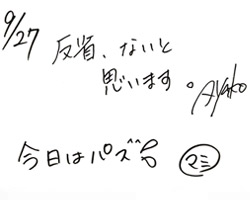 9/27
反省、ないと
思います。Ayako
今日はパズる
マミ